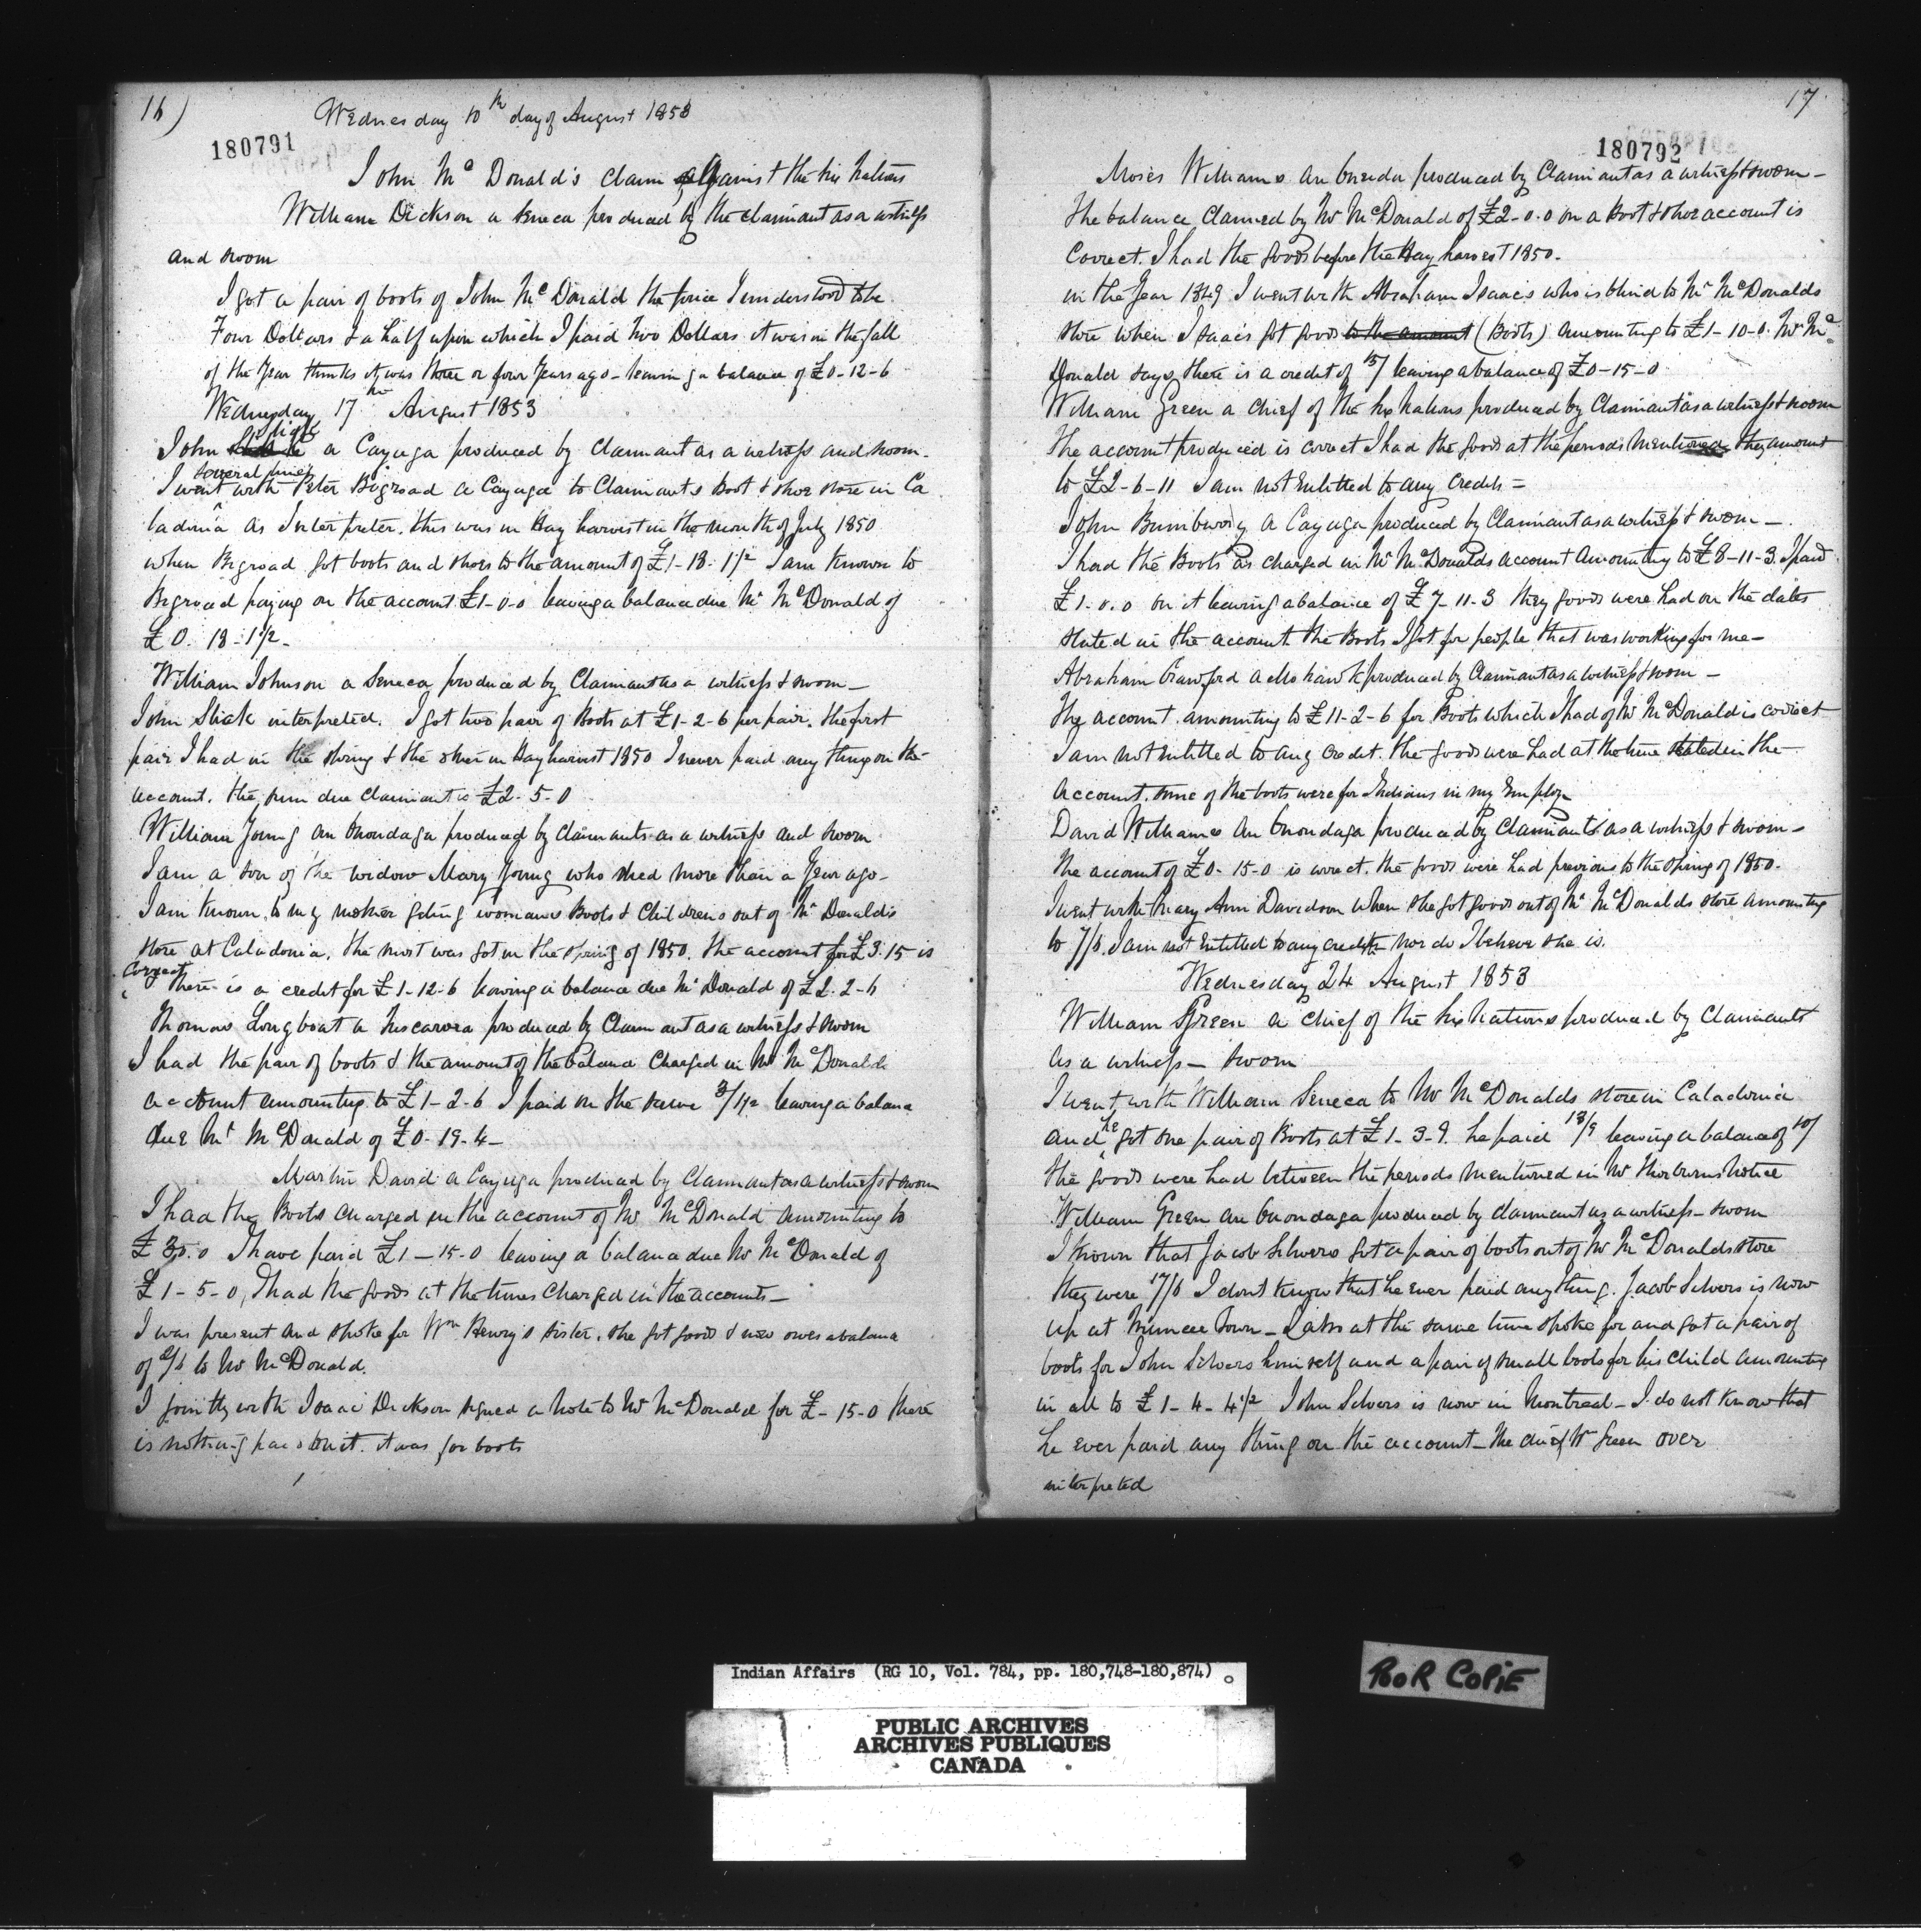 16)
Wednesday 10th day of August 1853
180791
John Mc Donald's Claim against the Six Nations
William Dickson a Seneca produced by the claimant as a witness
and sworn
I got a pair of boots of John McDonald the price I understood to be
Four Dollars & a half upon which I paid two Dollars it was in the fall
of the Year thinks it was three or four Years ago - leaving a balance of £0-12-6
Wednesday 17th August 1853
John Sliak a Cayuga produced by Claimant as a witness and sworn -
I went several times with Peter Bigroad a Cayuga to Claimants Boot & shoe store in Ca
ladonia as Interpreter. this was in Hay harvest in the month of July 1850
when Bigroad got boots and shoes to the amount of £1-18-1½ I am known to
Bigroad paying on the account £1-0-0 leaving a balance due Mr McDonald of
£0.18-1½-
William Johnson a Seneca produced by Claimant as a witness & sworn -
John Sliak interpreted. I got two pair of Boots at £1-2-6 per pair. the first
pair I had in the spring & the other in Hay harvest 1850 I never paid any thing on the
account. the sum due claimant is £2-5-0
William Young an Onondaga produced by claimants as a witness and sworn
I am a son of the widow Mary Young who died more than a Year ago -
I am known to my mother geting womans Boots & Childrens out of Mr Donald's
store at Caladonia. the most was got in the spring of 1850. the account for £3.15 is
Correct there is a credit for £1-12-6 leaving a balance due Mr Donald of £2.2-6
Thomas Longboat a Tuscarora produced by Claimant as a witness & sworn
I had the pair of boots & the amount of the balance Charged in Mr McDonalds
account amounting to £1-2-6 I paid on the same 3/1½ leaving a balance
due Mr McDonald of £0-19-4-
Martin David a Cayuga produced by Claimant as a witness & sworn
I had the Boots charged in the account of Mr McDonald amounting to
£3.0.0 I have paid £1-15-0 leaving a balance due Mr McDonald of
£1-5-0, I had the goods at the times charged in the accounts -
I was present and spoke for Wm Henry's sister. she got goods & now owes a balance
of to Mr McDonald.
I jointly with Isaac Dickson signed a Note to Mr McDonald for £-15-0 there
is nothing paid on it. it was for boots
17
180792
Moses Williams an Oneida produced by Claimant as a witness & sworn -
the balance claimed by Mr McDonald of £2-0.0 on a Boot & shoe account is
Correct. I had the goods before the Hay harvest 1850.
in the Year 1849 I went with Abraham Isaacs who is blind to Mr McDonalds
store when Isaacs got goods to the amount (Boots) amounting to £1-10-0. Mr Mc
Donald says there is a credit of 15/ leaving a balance of £0-15-0
William Green a Chief of the Six Nations produced by Claimant as a witness & sworn
the account produced is correct I had the goods at the periods mentioned they amount
to £2-6-11 I am not entitled to any Credits =
John Bumberry a Cayuga produced by Claimant as a witness & sworn -
I had the Boots as charged in Mr McDonalds account amounting to £8-11-3. I paid
£1.0.0 on it leaving a balance of £7-11-3 they goods were had on the dates
stated in the account the Boots I got for people that was working for me -
Abraham Crawford a Mohawk produced by Claimant as a witness & sworn -
the account amounting to £11-2-6 for Boots which I had of Mr McDonald is correct
I am not entitled to any credit. the goods were had at the time stated in the
account. some of the boots were for Indians in my Employ
David Williams an Onondaga produced by Claimants as a witness & sworn -
the account of £0-15-0 is correct. the goods were had previous to the spring of 1850.
I went with Mary Ann Davidson when she got goods out of Mr McDonalds store amounting
to 7/6. I am not entitled to any credits nor do I believe she is.
Wednesday 24 August 1853
William Green a Chief of the Six Nations produced by Claimants
as a witness - sworn
I went with William Seneca to Mr McDonalds store in Caladonia
and he got one pair of Boots at £1-3-9. he paid 13/9 leaving a balance of 10/
the goods were had between the periods mentioned in Mr Thorburns Notice
William Green an Onondaga produced by claimant as a witness - sworn
I known that Jacob Silvers got a pair of boots out of Mr McDonalds store
they were 17/6 I dont know that he ever paid anything. Jacob Silvers is now
up at Muncee Town - I also at the same time spoke for and got a pair of
boots for John Silvers himself and a pair of small boots for his child amounting
in all to £1-4-4½ John Silvers is now in Montreal - I do not know that
he ever paid any thing on the account - the chief Wm Green over
interpreted
Indian Affairs (RG 10, Vol. 784, pp. 180,748-180,874)
POOR COPIE
PUBLIC ARCHIVES
ARCHIVES PUBLIQUES
CANADA